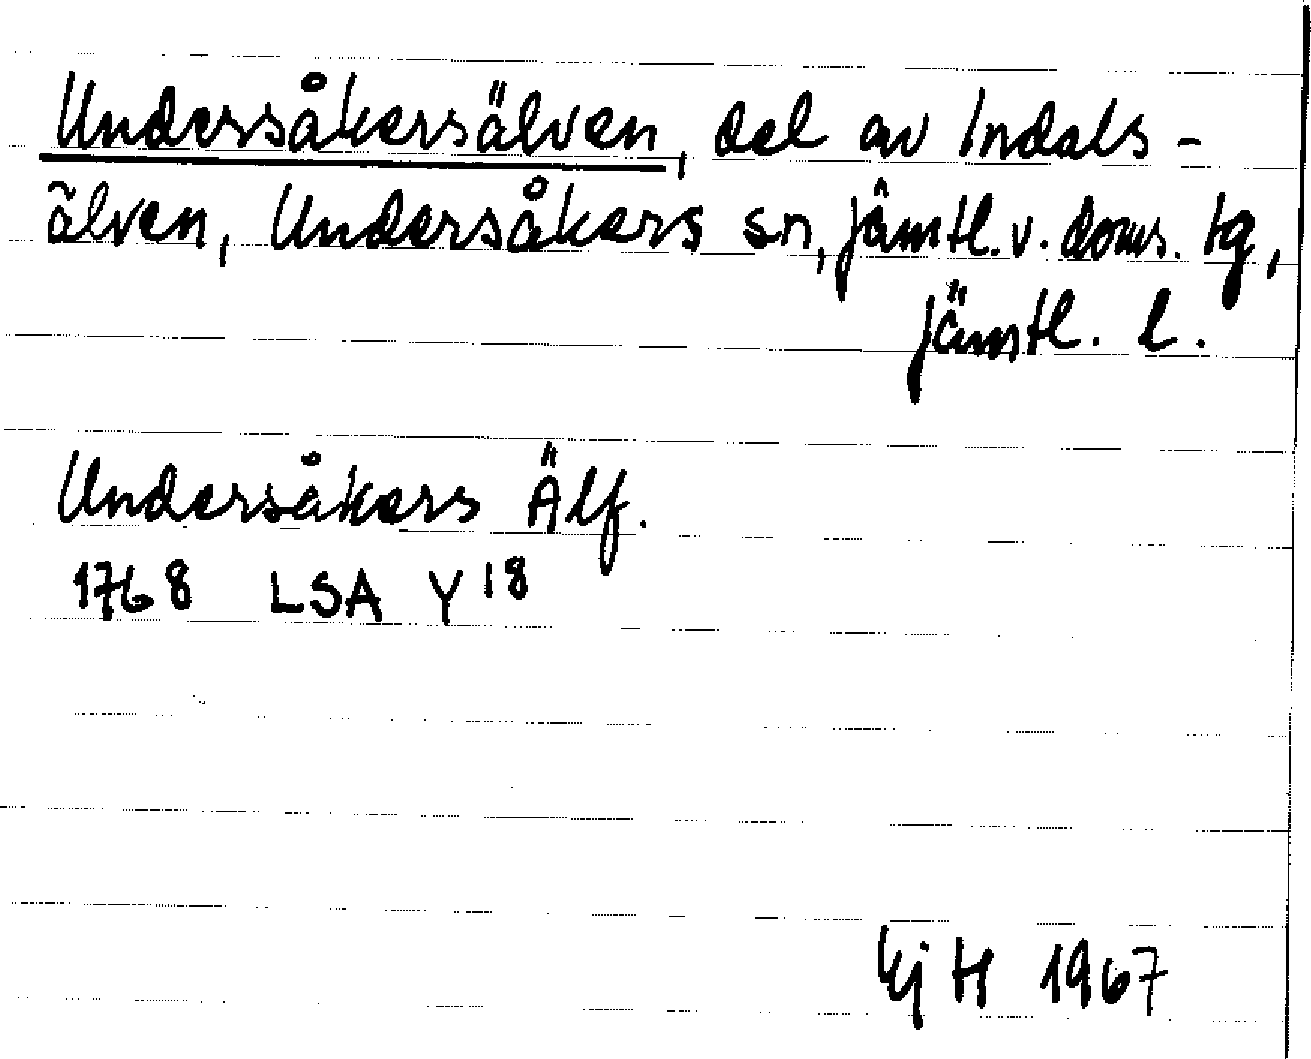 Undersåkersälven, del av Indals-
älven, Undersåkers sn, Jämtl. v. doms. tg,
Jämtl. l.
Undersåkers Älf.
1768 LSA Y 18
EjH 1967